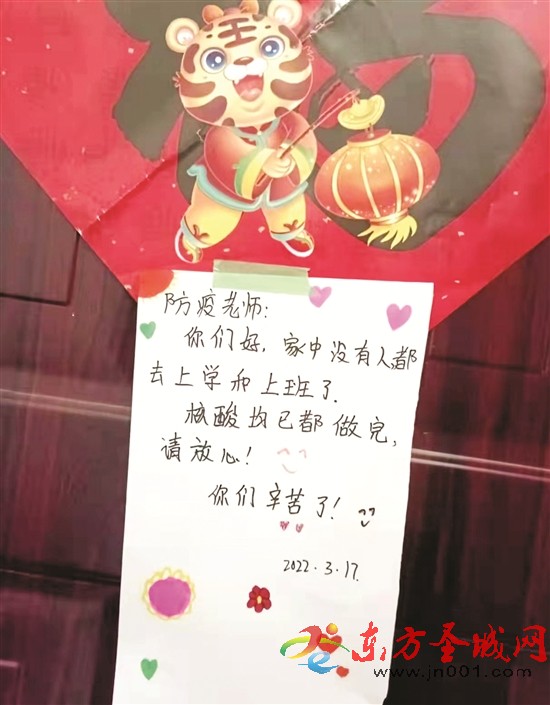 王
防疫老师:
你们好，家中没有人都
去上学和上班了.
核酸均已都做完，
请放心！
你们辛苦了！
2022.3.17.
东方圣城网
www.jn001.com